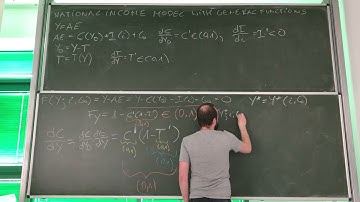 NATIONAL INCOME MODEL WITH GENERAL FUNCTIONS
Y=AE
AE=C(Yd)+I(i)+G₀ dC/dYd=C'∈(0,1), dI/di=I'<0
Yd=Y-T
T=T(Y) dT/dY=T'∈(0,1)
F(Y;i,G₀)=Y-AE=Y-C(Yd)-I(i)-G₀=0 Y*=Y*(i,G₀)
Fy=1-C'(1-T')∈(0,1)
dC/dY=dC/dYd dYd/dY=C'(1-T')
(0,1) (0,1)
(0,1)